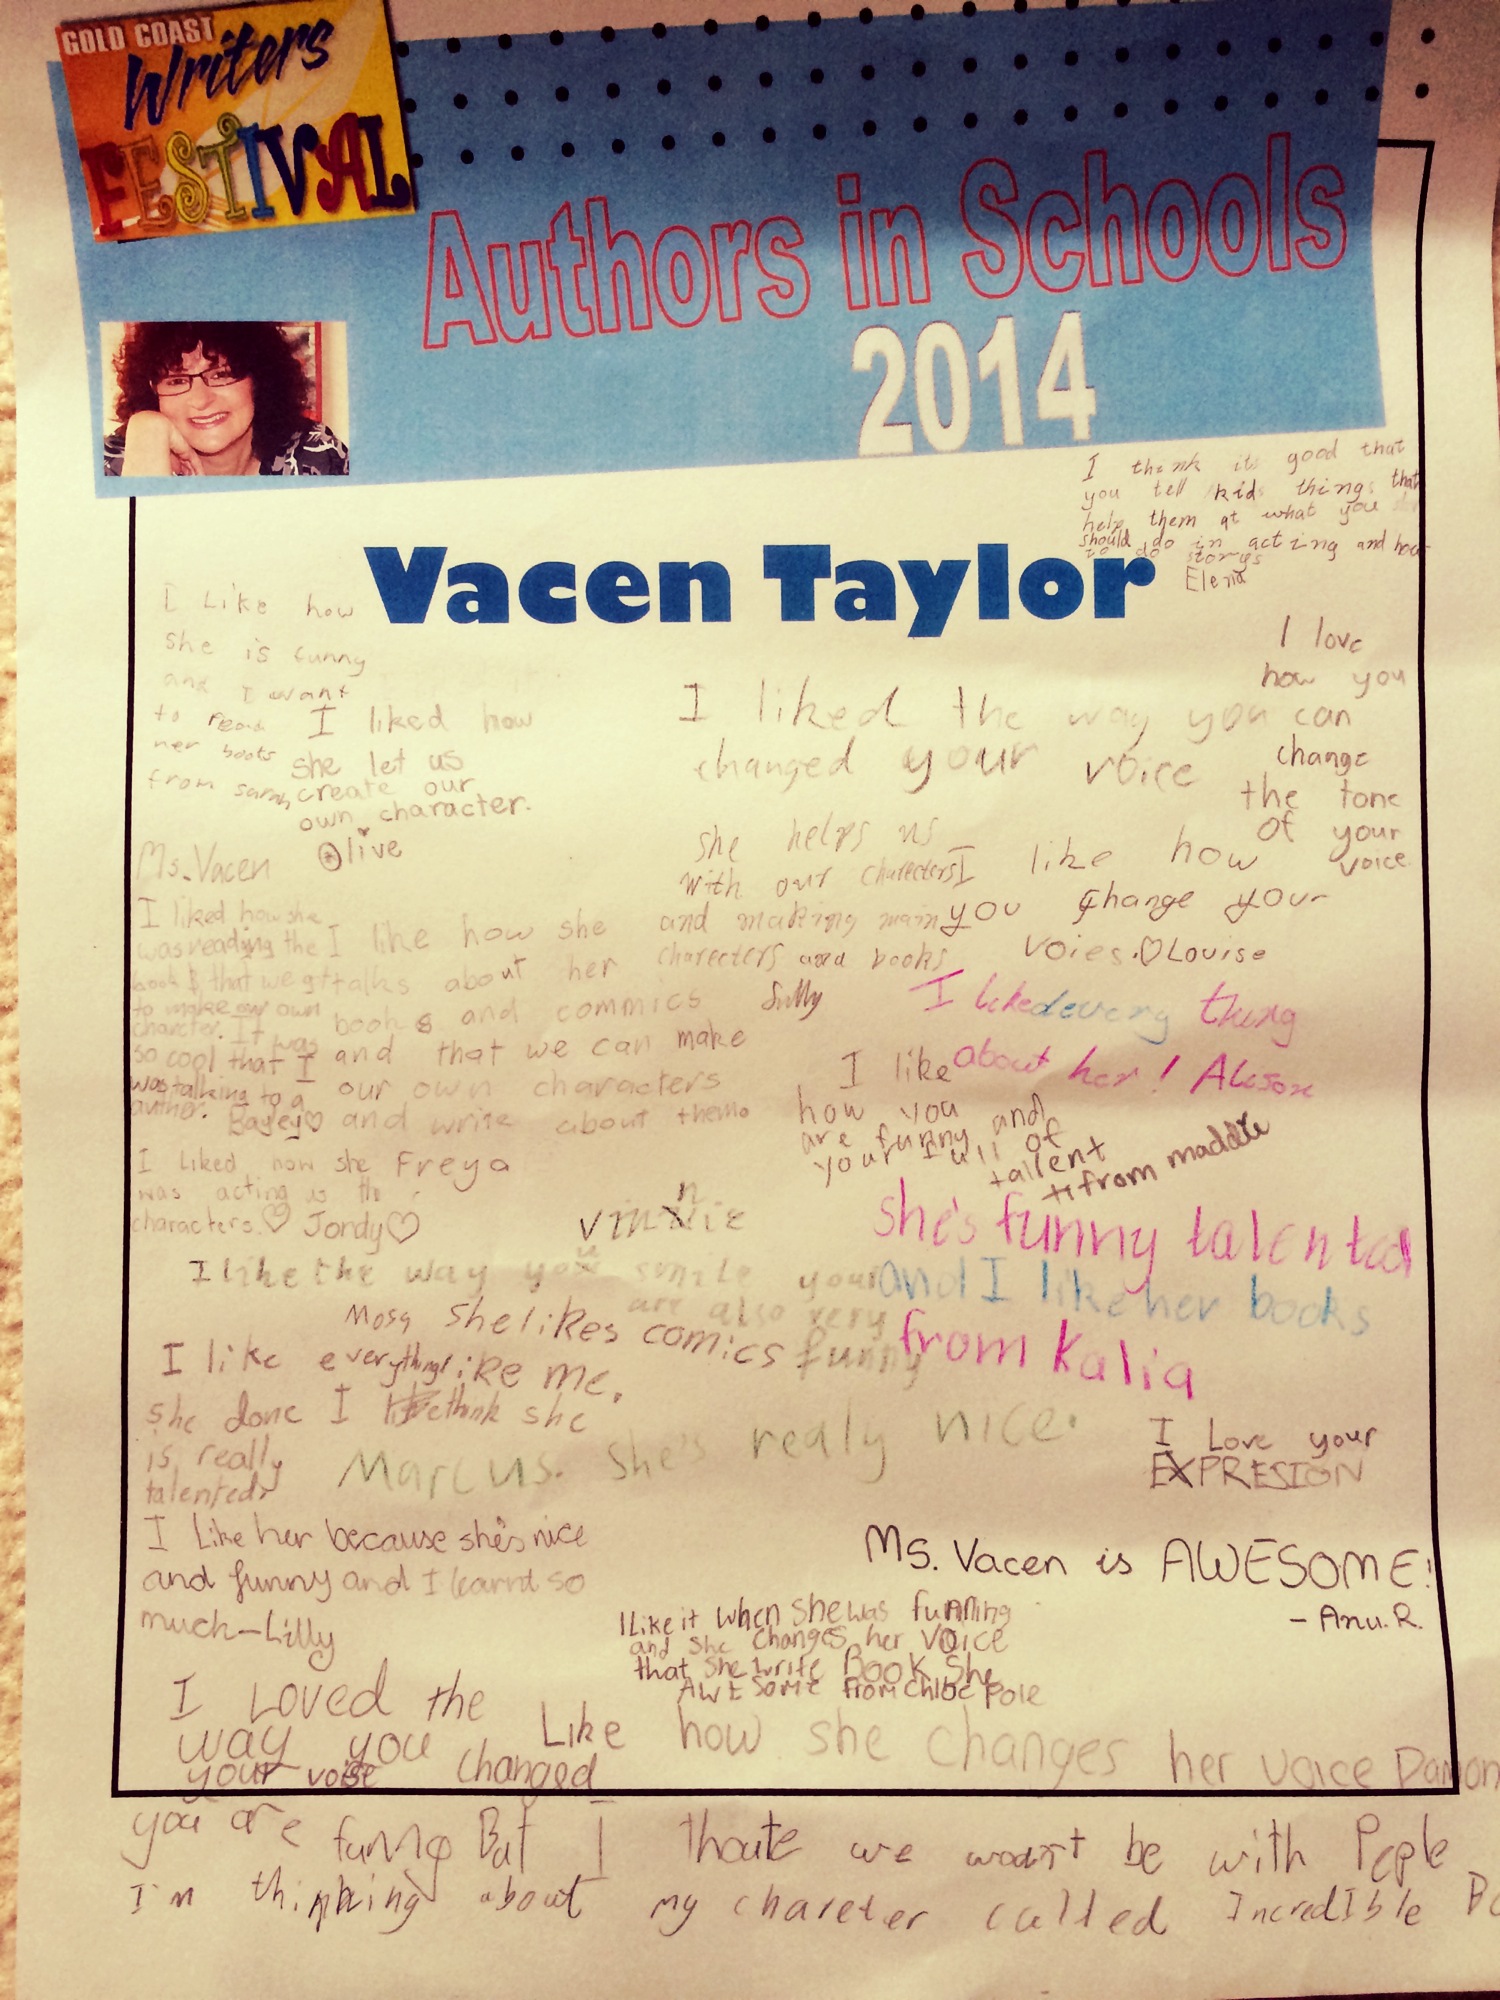 GOLD COAST
Writers
FESTIVAL
Authors in Schools
2014
Vacen Taylor
I think its good that
you tell kids things that
help them at what you
should do in acting and how
to do storys
Elena
I like how
she is funny
and I want
to read
her books
from sarah
I liked how
she let us
create our
own character.
Olive
I liked the way you
changed your voice
I love
how you
can
change
the tone
of your
voice
Ms. Vacen
I liked how she
was reading the
book & that we get
to make our own
charcter. It was
so cool that I
was talking to a
author. Bayley
I like how she
talks about her
books and commics
and that we can make
our own characters
and write about them.
Freya
she helps us
with our charecters
and making main
charecters and books
Sully
I like how
you change your
voies. Louise
I liked every thing
about her! Alison
I like
how you
are funny and
your full of
tallent
from maddie
I liked how she
was acting as the
characters. Jordy
vinnie
I like the way you smile your
are also very
funny
she's funny talented
and I like her books
from Kalia
Mosa she likes comics
like me.
I like everything
she done I think she
is really
talented
Marcus. She's realy nice.
I Love your
EXPRESION
I Like her because she's nice
and funny and I learnt so
much - Lilly
Ms. Vacen is AWESOME!
- Anu.R.
I like it when she was funning
and she changes her voice
that she write BOOK She
AWESOME from Chloe Pole
I LOVED the
way you
changed
your voise
Like how she changes her voice Damon
you are funny But I thoute we woant be with Peple
I'm thinking about my chareter called IncredIble